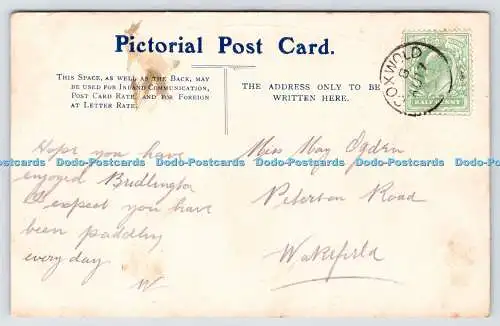 Pictorial Post Card.
THIS SPACE, AS WELL AS THE BACK, MAY
BE USED FOR INLAND COMMUNICATION,
POST CARD RATE, AND FOR FOREIGN
AT LETTER RATE.
THE ADDRESS ONLY TO BE
WRITTEN HERE.
COXWOLD
HALFPENNY
Hope you have
enjoyed Bridlington
I expect you have
been paddling
every day.
W
Miss May Ogden
Peterson Road
Wakefield
Dodo-Postcards Dodo-Postcards Dodo-Postcards Dodo-Postcards Dodo-Postcards Dodo-Postcards